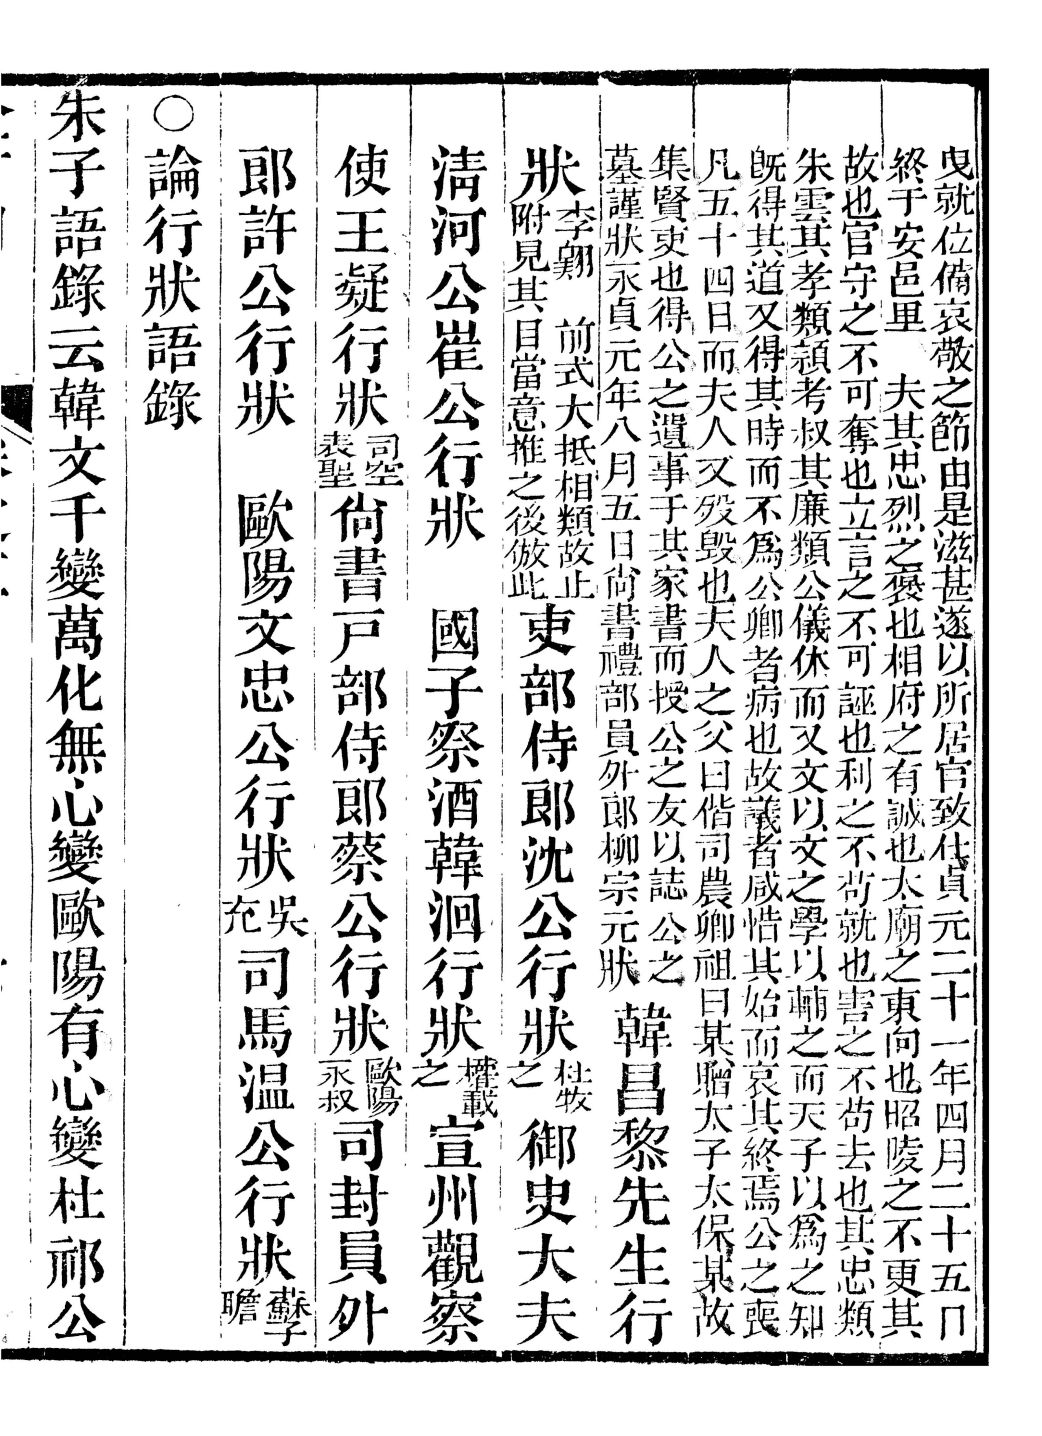 曳就位備哀敬之節由是滋甚遂以所居官致仕貞元二十一年四月二十五日
終于安邑里　夫其忠烈之褒也相府之有誠也太廟之東向也昭陵之不更其
故也官守之不可奪也立言之不可誣也利之不茍就也害之不茍去也其忠類
朱雲其孝類潁考叔其廉類公儀休而又文以文之學以輔之而天子以爲之知
旣得其道又得其時而不爲公卿者病也故議者咸惜其始而哀其終焉公之喪
凡五十四日而夫人又歿毀也夫人之父曰偕司農卿祖曰某贈太子太保某故
集賢吏也得公之遺事于其家書而授公之友以誌公之
墓謹狀永貞元年八月五日尙書禮部員外郎柳宗元狀　韓昌黎先生行
狀李翺　前式大抵相類故止附見其目當意推之後倣此　吏部侍郎沈公行狀杜牧之　御史大夫
淸河公崔公行狀　國子祭酒韓洄行狀權載之　宣州觀察
使王凝行狀司空表聖　尙書戸部侍郎蔡公行狀歐陽永叔　司封員外
郎許公行狀　歐陽文忠公行狀吳充　司馬温公行狀蘇子瞻
○論行狀語錄
朱子語錄云韓文千變萬化無心變歐陽有心變杜祁公